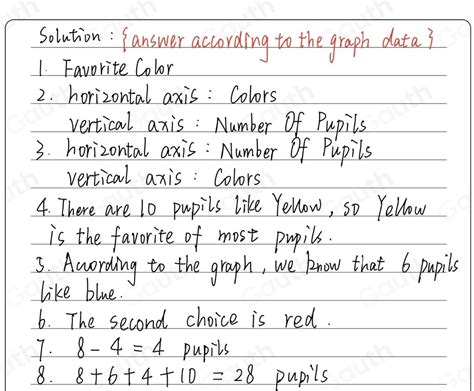 Solution : {answer according to the graph data}
1. Favorite Color
2. horizontal axis : Colors
vertical axis : Number Of Pupils
3. horizontal axis : Number Of Pupils
vertical axis : Colors
4. There are 10 pupils like Yellow, so Yellow
is the favorite of most pupils.
5. According to the graph, we know that 6 pupils
like blue.
6. The second choice is red.
7. 8 - 4 = 4 pupils
8. 8 + 6 + 4 + 10 = 28 pupils